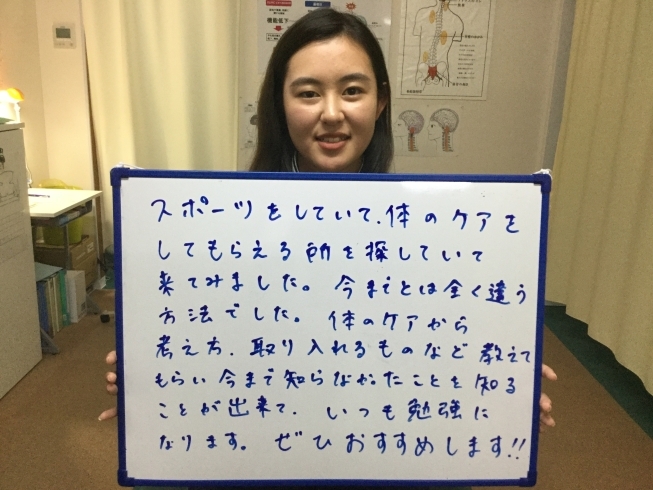 機能低下
スポーツをしていて、体のケアを
してもらえる所を探していて
来てみました。今までとは全く違う
方法でした。体のケアから
考え方、取り入れるものなど教えて
もらい今まで知らなかったことを知る
ことが出来て、いつも勉強に
なります。ぜひおすすめします!!